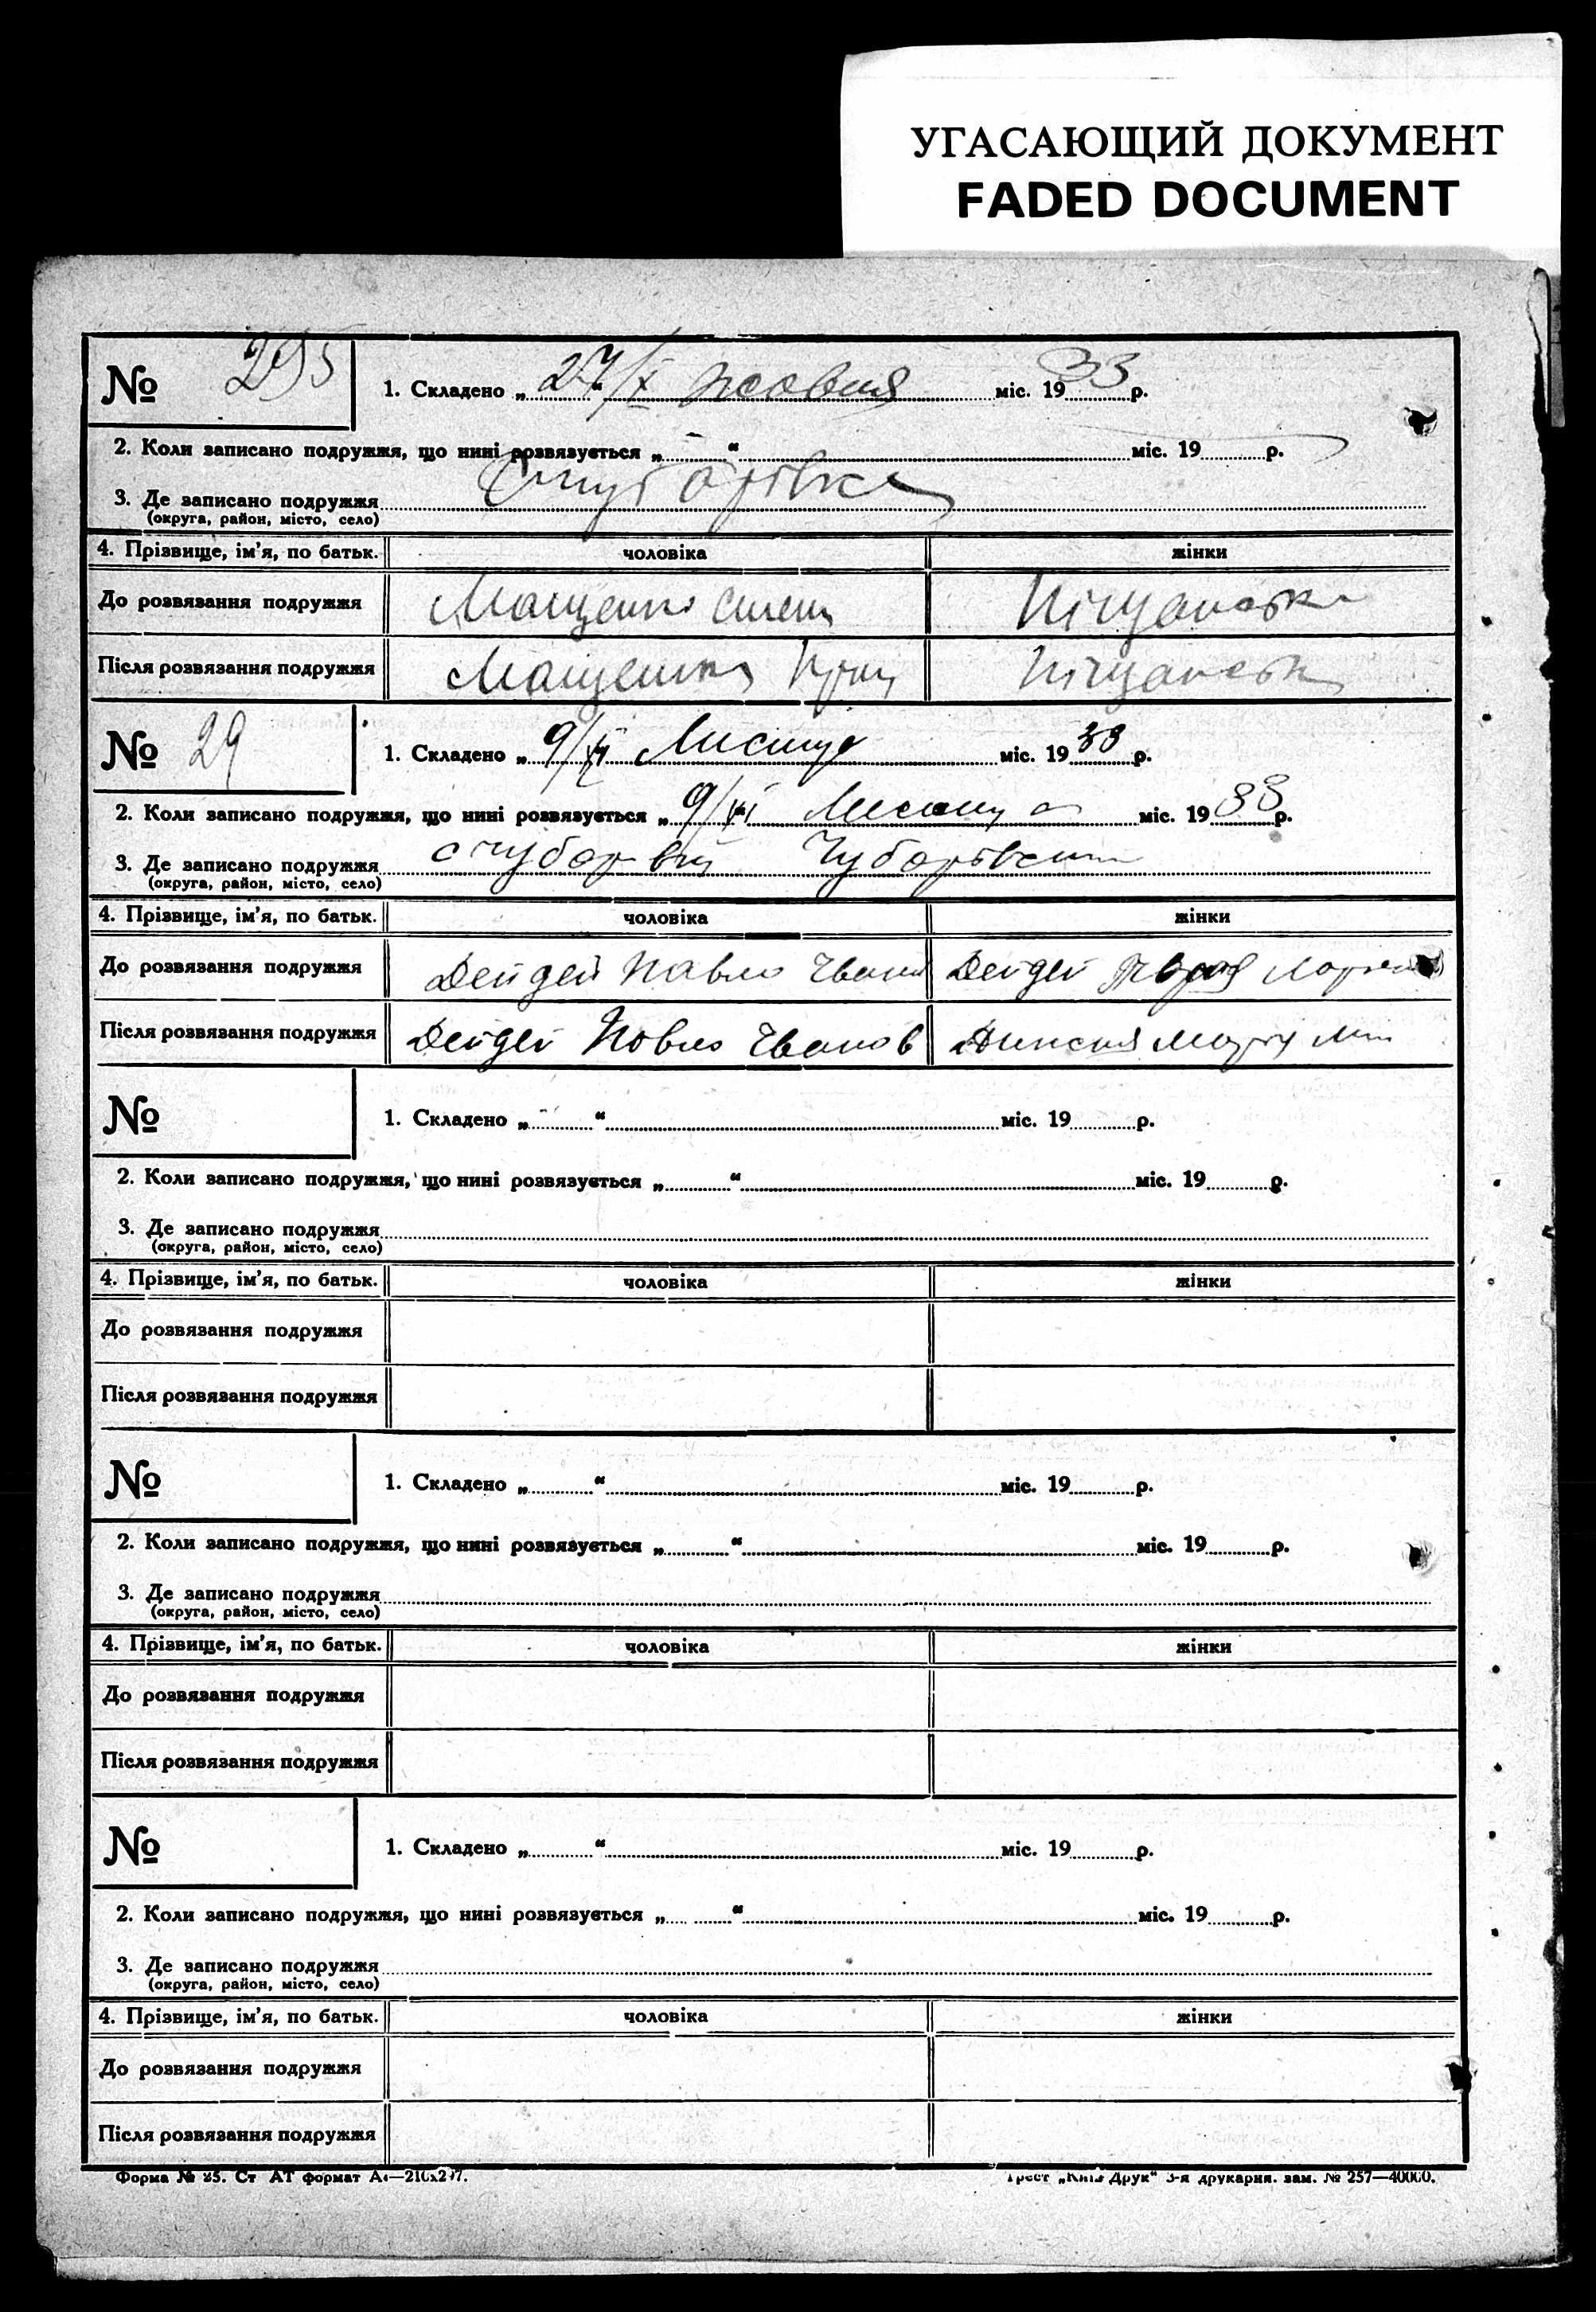 УГАСАЮЩИЙ ДОКУМЕНТ
FADED DOCUMENT
№ 295
1. Складено „27/X“ жовтня міс. 1933 р.
2. Коли записано подружжя, що нині розвязується „ “ міс. 19 р.
3. Де записано подружжя
(округа, район, місто, село)
4. Прізвище, ім'я, по батьк. чоловіка жінки
До розвязання подружжя Мащенко
Після розвязання подружжя Мащенко
№ 29
1. Складено „9/XI“ Листопа міс. 1933 р.
2. Коли записано подружжя, що нині розвязується „9/XI“ міс. 1933 р.
3. Де записано подружжя
(округа, район, місто, село)
4. Прізвище, ім'я, по батьк. чоловіка жінки
До розвязання подружжя Дейдей Павло Іванов Дейдей
Після розвязання подружжя Дейдей Павло Іванов
№
1. Складено „ “ міс. 19 р.
2. Коли записано подружжя, що нині розвязується „ “ міс. 19 р.
3. Де записано подружжя
(округа, район, місто, село)
4. Прізвище, ім'я, по батьк. чоловіка жінки
До розвязання подружжя
Після розвязання подружжя
№
1. Складено „ “ міс. 19 р.
2. Коли записано подружжя, що нині розвязується „ “ міс. 19 р.
3. Де записано подружжя
(округа, район, місто, село)
4. Прізвище, ім'я, по батьк. чоловіка жінки
До розвязання подружжя
Після розвязання подружжя
№
1. Складено „ “ міс. 19 р.
2. Коли записано подружжя, що нині розвязується „ “ міс. 19 р.
3. Де записано подружжя
(округа, район, місто, село)
4. Прізвище, ім'я, по батьк. чоловіка жінки
До розвязання подружжя
Після розвязання подружжя
Форма № 25. Ст АТ формат А4—210x297. Трест „Київ Друк“ 3-я друкарня. зам. № 257—40000.